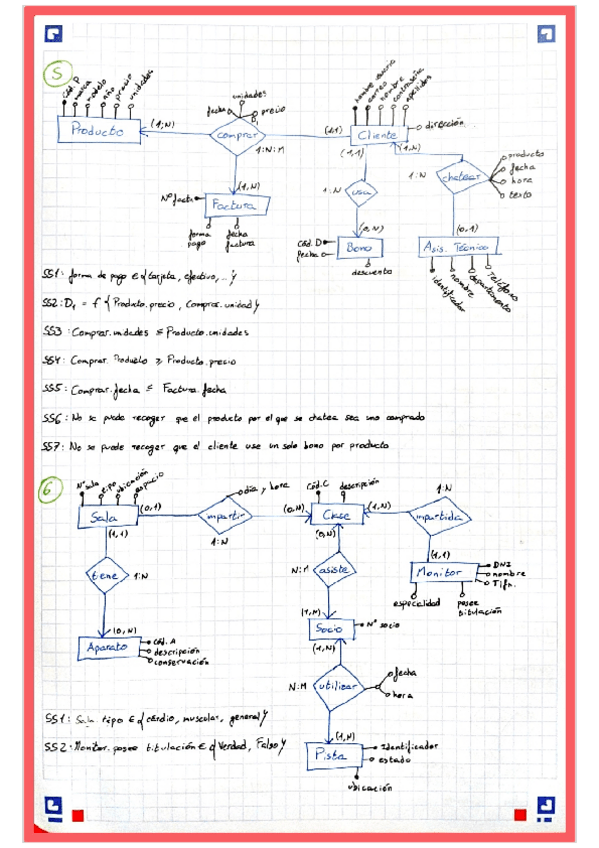 5
Cód. P
marca
modelo
año
precio
unidades
Producto
(1,N)
fecha
unidades
precio
comprar
1:N:M
(1,1)
nombre usuario
correo
nombre
contraseña
apellidos
Cliente
dirección
(1,1)
(1,N)
1:N
usa
1:N
chatear
producto
fecha
hora
texto
(1,N)
Nº fact
Factura
forma pago
fecha factura
(0,N)
Cód. D
fecha
Bono
descuento
(0,1)
Asis. Técnico
identificador
nombre
departamento
Teléfono
SS1: forma de pago ∈ {tarjeta, efectivo, ...}
SS2: D₁ = f {Producto.precio, Comprar.unidad}
SS3: Comprar.unidades ≤ Producto.unidades
SS4: Comprar. Producto ≥ Producto.precio
SS5: Comprar.fecha ≤ Factura.fecha
SS6: No se puede recoger que el producto por el que se chatea sea uno comprado
SS7: No se puede recoger que el cliente use un solo bono por producto
6
Nº sala
tipo
ubicación
espacio
Sala
(0,1)
día y hora
impartir
1:N
(0,N)
Cód. C
descripción
Clase
(1,N)
1:N
impartida
(1,1)
(0,N)
(1,1)
tiene
1:N
N:M
asiste
Monitor
DNI
nombre
Tlfn.
especialidad
posee titulación
(0,N)
Aparato
Cód. A
descripción
conservación
(1,N)
Socio
Nº socio
(1,N)
N:M
utilizar
fecha
hora
SS1: Sala. tipo ∈ {cardio, muscular, general}
SS2: Monitor. posee titulación ∈ {Verdad, Falso}
(1,N)
Pista
Identificador
estado
ubicación